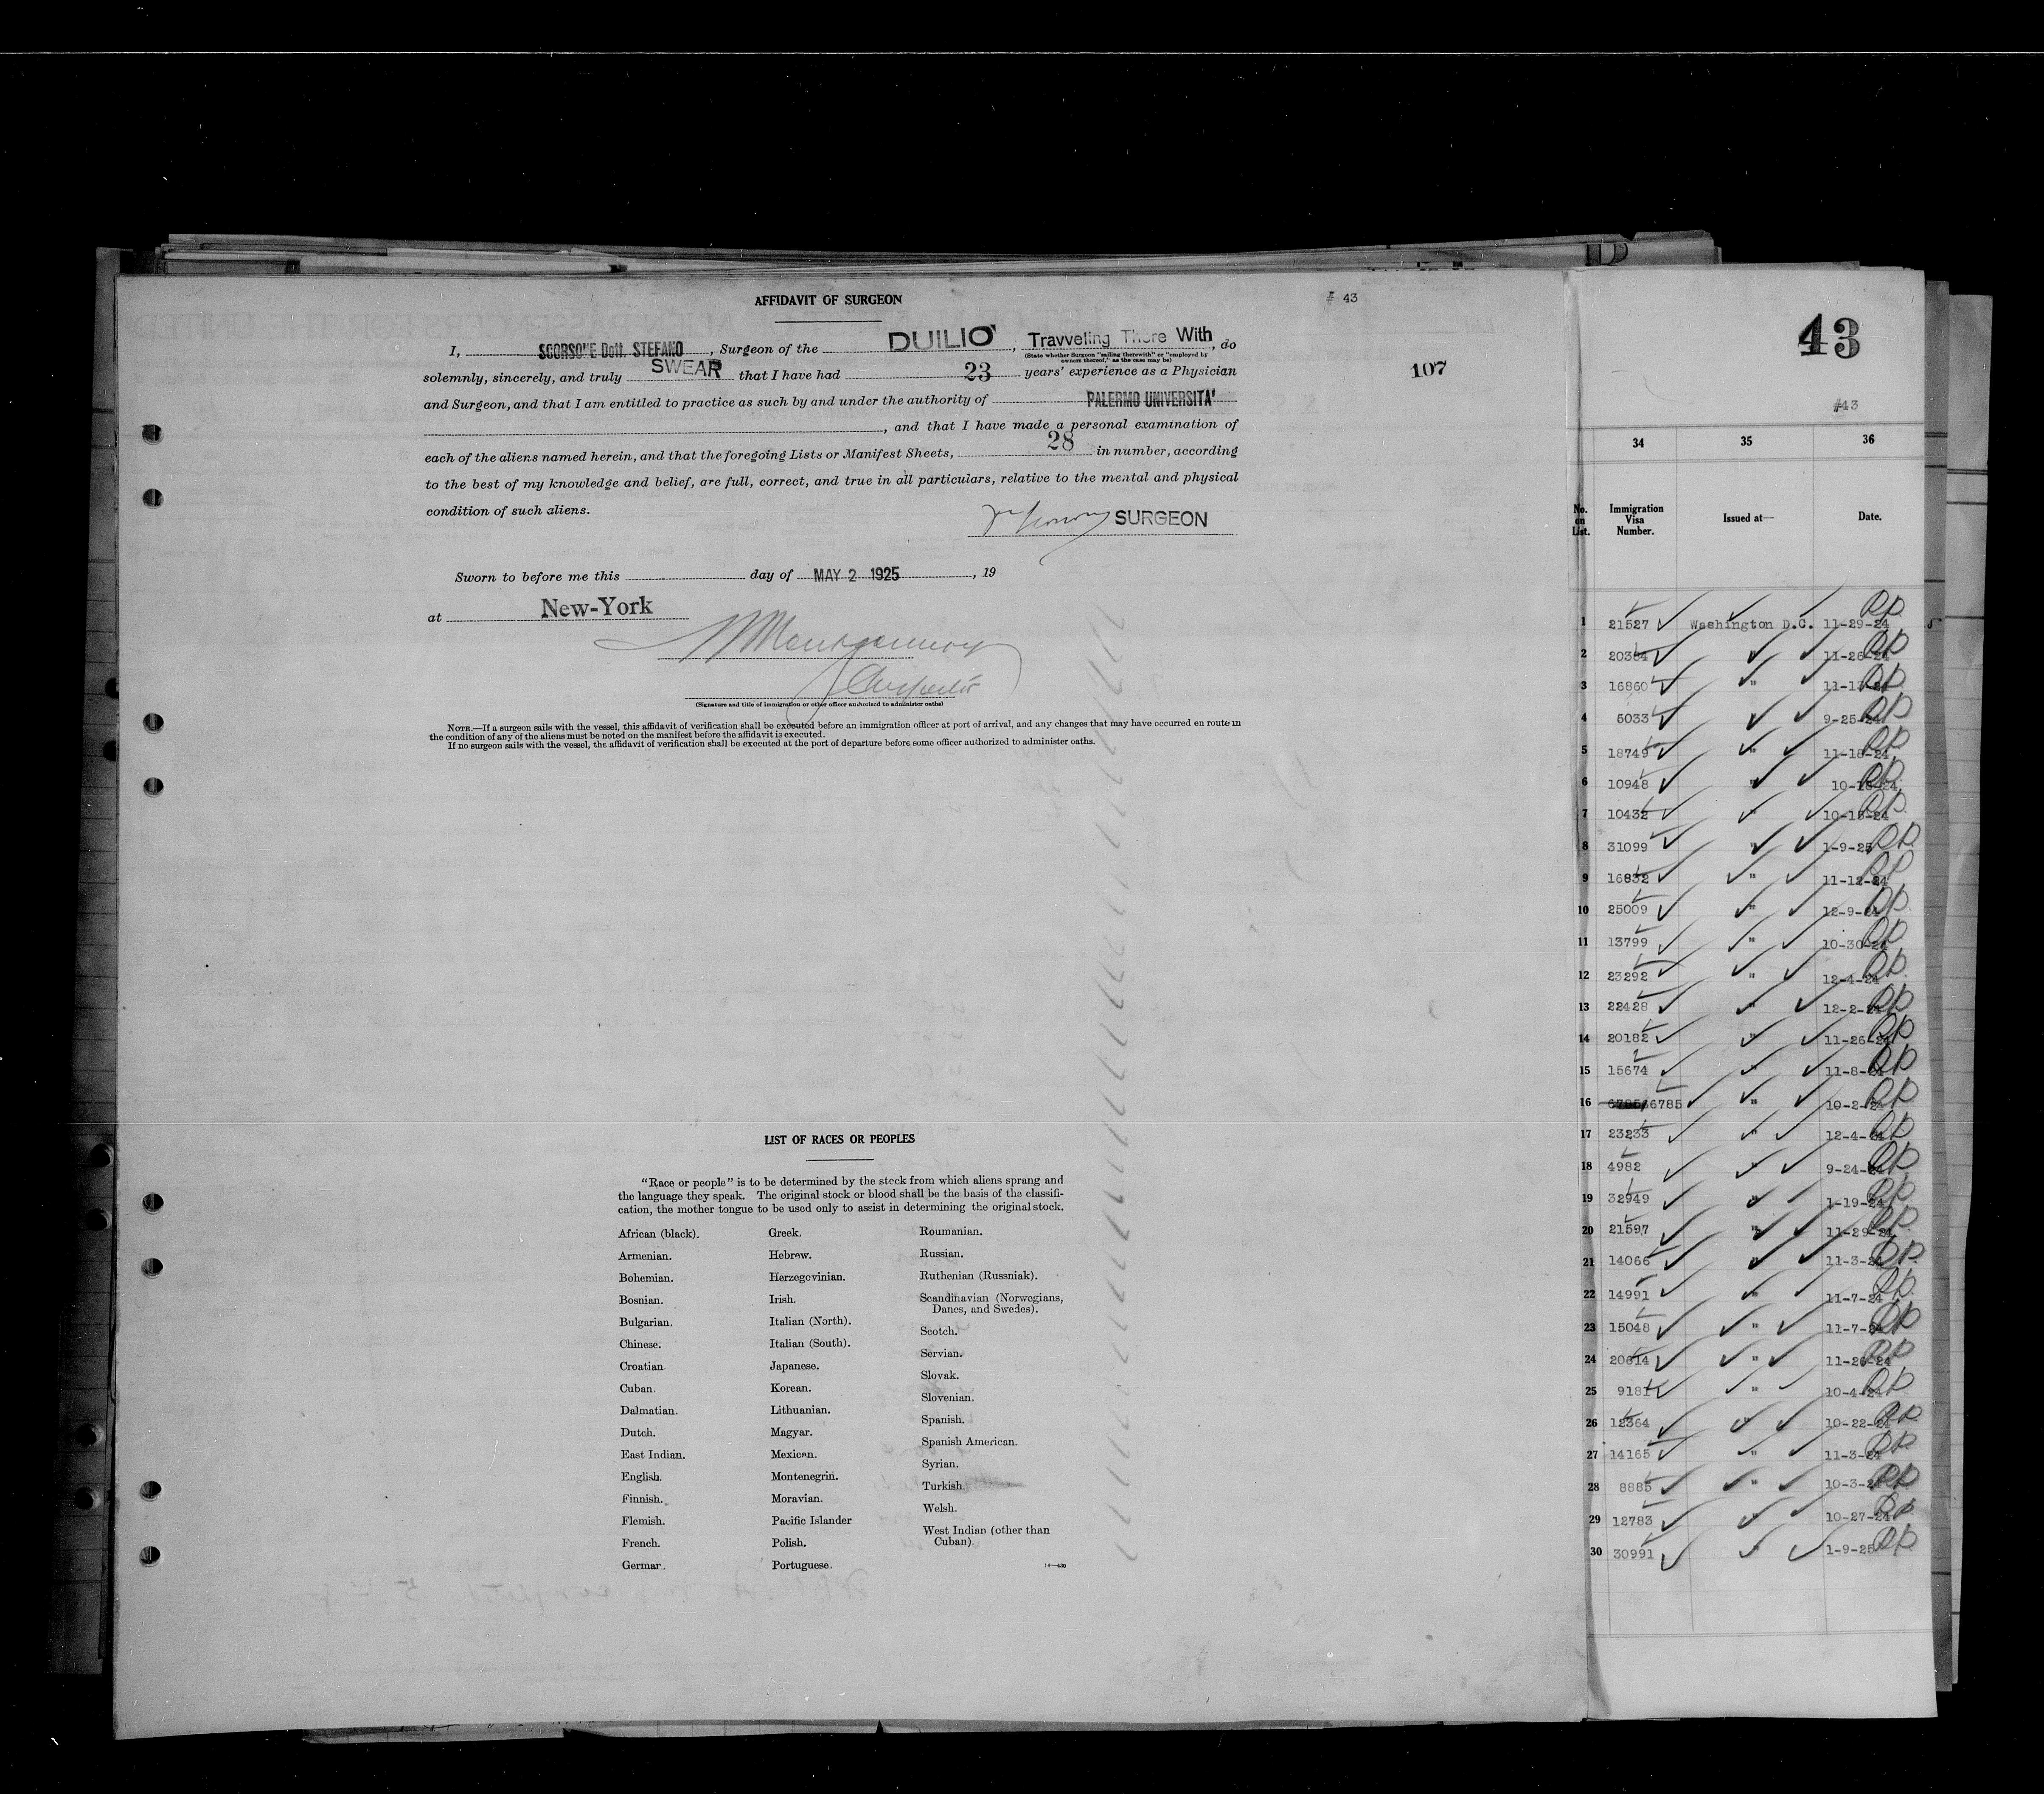 AFFIDAVIT OF SURGEON
# 43
I, SCORSONE Dott. STEFANO, Surgeon of the DUILIO, Travveling There With, do
(State whether Surgeon "sailing therewith" or "employed by owners thereof," as the case may be)
solemnly, sincerely, and truly SWEAR that I have had 23 years' experience as a Physician
107
and Surgeon, and that I am entitled to practice as such by and under the authority of PALERMO UNIVERSITA'
, and that I have made a personal examination of
each of the aliens named herein, and that the foregoing Lists or Manifest Sheets, 28 in number, according
to the best of my knowledge and belief, are full, correct, and true in all particulars, relative to the mental and physical
condition of such aliens.
SURGEON
Sworn to before me this day of MAY 2 1925, 19
at New-York
(Signature and title of immigration or other officer authorized to administer oaths)
NOTE.—If a surgeon sails with the vessel, this affidavit of verification shall be executed before an immigration officer at port of arrival, and any changes that may have occurred en route in
the condition of any of the aliens must be noted on the manifest before the affidavit is executed.
If no surgeon sails with the vessel, the affidavit of verification shall be executed at the port of departure before some officer authorized to administer oaths.
LIST OF RACES OR PEOPLES
"Race or people" is to be determined by the stock from which aliens sprang and
the language they speak. The original stock or blood shall be the basis of the classifi-
cation, the mother tongue to be used only to assist in determining the original stock.
African (black).
Armenian.
Bohemian.
Bosnian.
Bulgarian.
Chinese.
Croatian
Cuban.
Dalmatian.
Dutch.
East Indian.
English.
Finnish.
Flemish.
French.
German.
Greek.
Hebrew.
Herzegovinian.
Irish.
Italian (North).
Italian (South).
Japanese.
Korean.
Lithuanian.
Magyar.
Mexican.
Montenegrin.
Moravian.
Pacific Islander
Polish.
Portuguese.
Roumanian.
Russian.
Ruthenian (Russniak).
Scandinavian (Norwegians,
Danes, and Swedes).
Scotch.
Servian.
Slovak.
Slovenian.
Spanish.
Spanish American.
Syrian.
Turkish.
Welsh.
West Indian (other than
Cuban).
14—430
43
#43
34 35 36
No. on List. Immigration Visa Number. Issued at— Date.
1 21527 Washington D.C. 11-29-24
2 20364 " 11-26-24
3 16860 " 11-13-24
4 5033 " 9-25-24
5 18749 " 11-18-24
6 10948 " 10-18-24
7 10432 " 10-18-24
8 31099 " 1-9-25
9 16832 " 11-12-24
10 25009 " 12-9-24
11 13799 " 10-30-24
12 23292 " 12-4-24
13 22428 " 12-2-24
14 20182 " 11-26-24
15 15674 " 11-8-24
16 6785 " 10-2-24
17 23233 " 12-4-24
18 4982 " 9-24-24
19 32949 " 1-19-24
20 21597 " 11-29-24
21 14066 " 11-3-24
22 14991 " 11-7-24
23 15048 " 11-7-24
24 20614 " 11-26-24
25 9181 " 10-4-24
26 12364 " 10-22-24
27 14165 " 11-3-24
28 8885 " 10-3-24
29 12783 " 10-27-24
30 30991 " 1-9-25